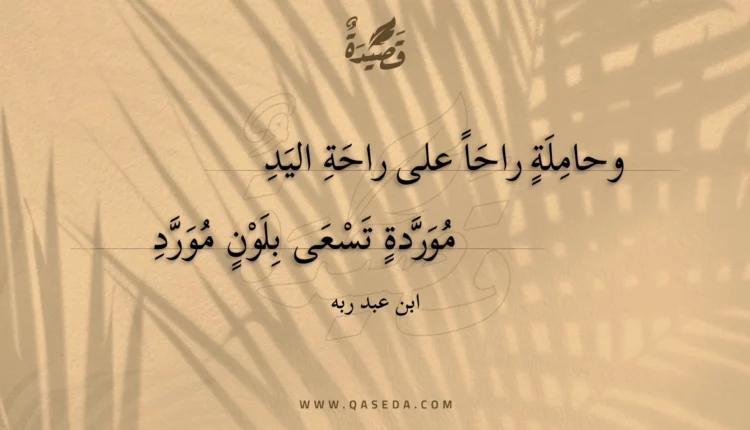 قَصِيْدَةٌ
وحامِلَةٍ راحَاً على راحَةِ اليَدِ
مُوَرَّدةٍ تَسْعَى بِلَوْنٍ مُوَرَّدِ
ابن عبد ربه
WWW.QASEDA.COM